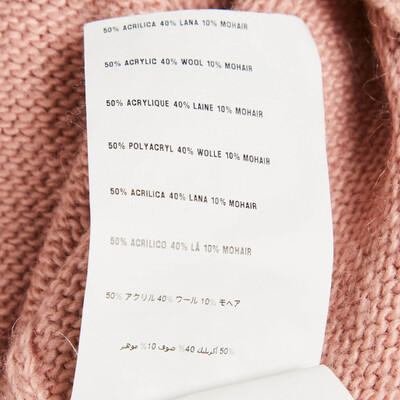 50% ACRILICA 40% LANA 10% MOHAIR
50% ACRYLIC 40% WOOL 10% MOHAIR
50% ACRYLIQUE 40% LAINE 10% MOHAIR
50% POLYACRYL 40% WOLLE 10% MOHAIR
50% ACRILICA 40% LANA 10% MOHAIR
50% ACRILICO 40% LÃ 10% MOHAIR
50% アクリル 40% ウール 10% モヘア
50% أكريليك 40% صوف 10% موهير